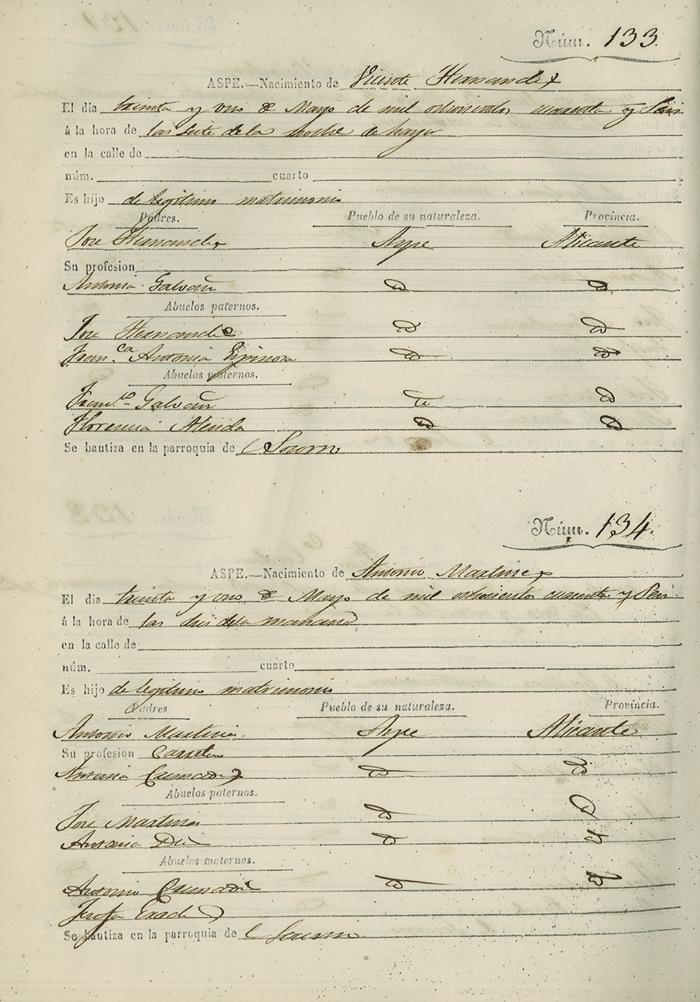 Núm. 133.
ASPE.—Nacimiento de Vicente Hernandez
El dia treinta y uno de Mayo de mil ochocientos cuarenta y Seis
á la hora de las siete de la noche de hayer
en la calle de
núm. cuarto
Es hijo de legitimo matrimonio
Padres. Pueblo de su naturaleza. Provincia.
Jose Hernandez Aspe Alicante
Su profesion
Antonia Galvañ
Abuelos paternos.
Jose Hernandez
Fran.ca Antonia Espinosa
Abuelos maternos.
Fran.co Galvañ
Florencia
Se bautiza en la parroquia de Socorro
Núm. 134.
ASPE.—Nacimiento de Antonio Martinez
El dia treinta y uno de Mayo de mil ochocientos cuarenta y Seis
á la hora de las dies de la mañana
en la calle de
núm. cuarto
Es hijo de legitimo matrimonio
Padres Pueblo de su naturaleza. Provincia.
Antonio Martinez Aspe Alicante
Su profesion
Antonia
Abuelos paternos.
Jose Martinez
Antonia
Abuelos maternos.
Antonio
Josefa
Se bautiza en la parroquia de Socorro